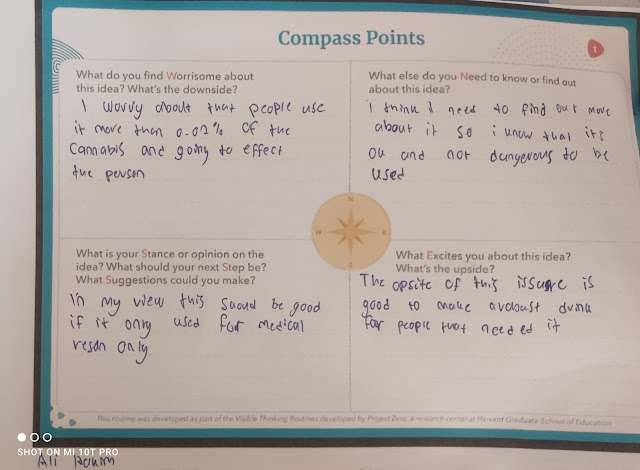 Compass Points
t
What do you find Worrisome about
this idea? What's the downside?
I worry about that people use
it more than 0.02% of the
Cannabis and going to effect
the person
What else do you Need to know or find out
about this idea?
I think I need to find out more
about it so i know that its
ou and not dangerous to be
used
N
W
E
S
What is your Stance or opinion on the
idea? What should your next Step be?
What Suggestions could you make?
In my view this should be good
if it only used for medical
resan only
What Excites you about this idea?
What's the upside?
The opsite of this issure is
good to make
for people that needed it
This routine was developed as part of the Visible Thinking Routines developed by Project Zero, a research center at Harvard Graduate School of Education
SHOT ON MI 10T PRO
Ali